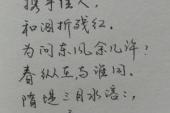 携手佳人，
和泪折残红。
为问东风余几许？
春纵在，与谁同。
隋堤三月水溶々，